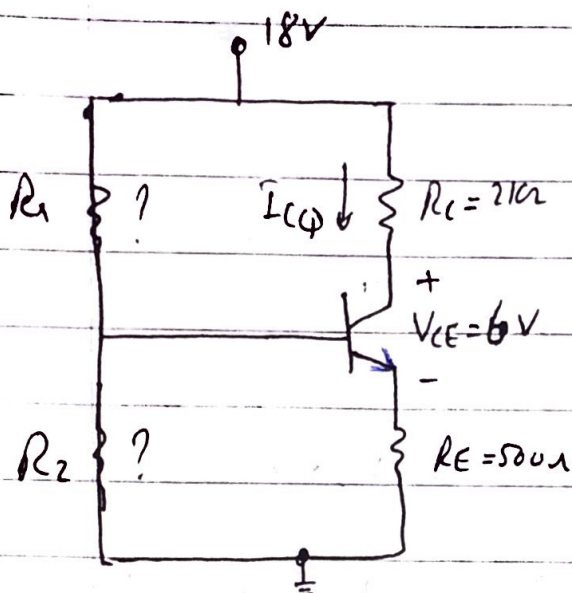 18V
R1 ?
ICQ
RC = 2kΩ
+
VCE = 6V
-
R2 ?
RE = 500Ω